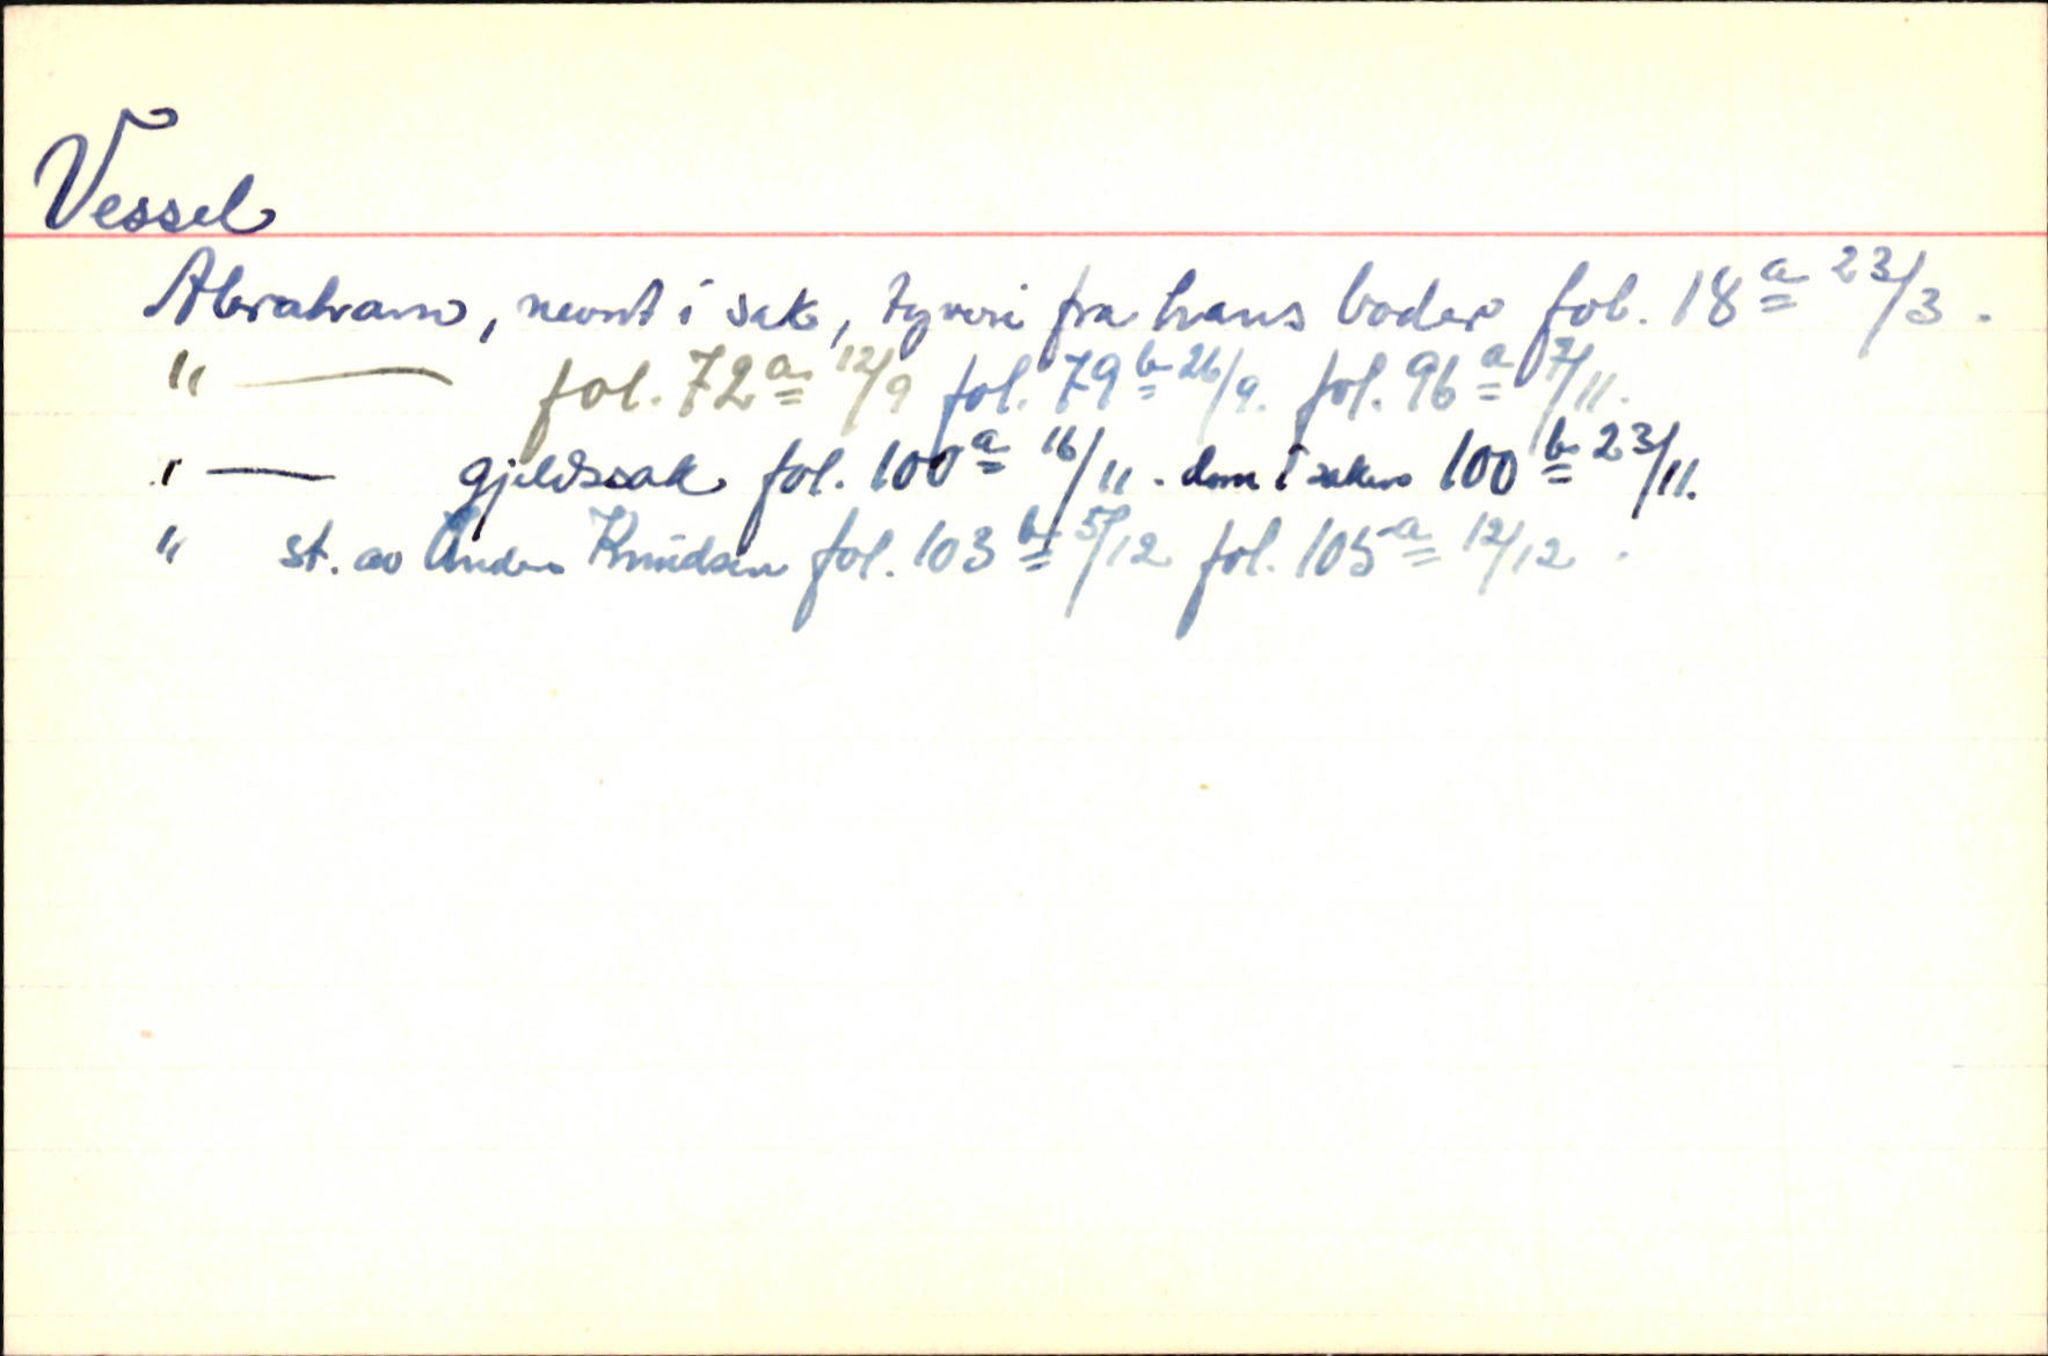 Vessel
Abraham, nevnt i sak, tyveri fra hans boder fol. 18 a 23/3.
" — fol. 72 a 12/9 fol. 79 b 26/9. fol. 96 a 7/11.
" — gjeldssak fol. 100 a 16/11. dom i saken 100 b 23/11.
" st. av Anders Knudsen fol. 103 b 5/12 fol. 105 a 12/12.